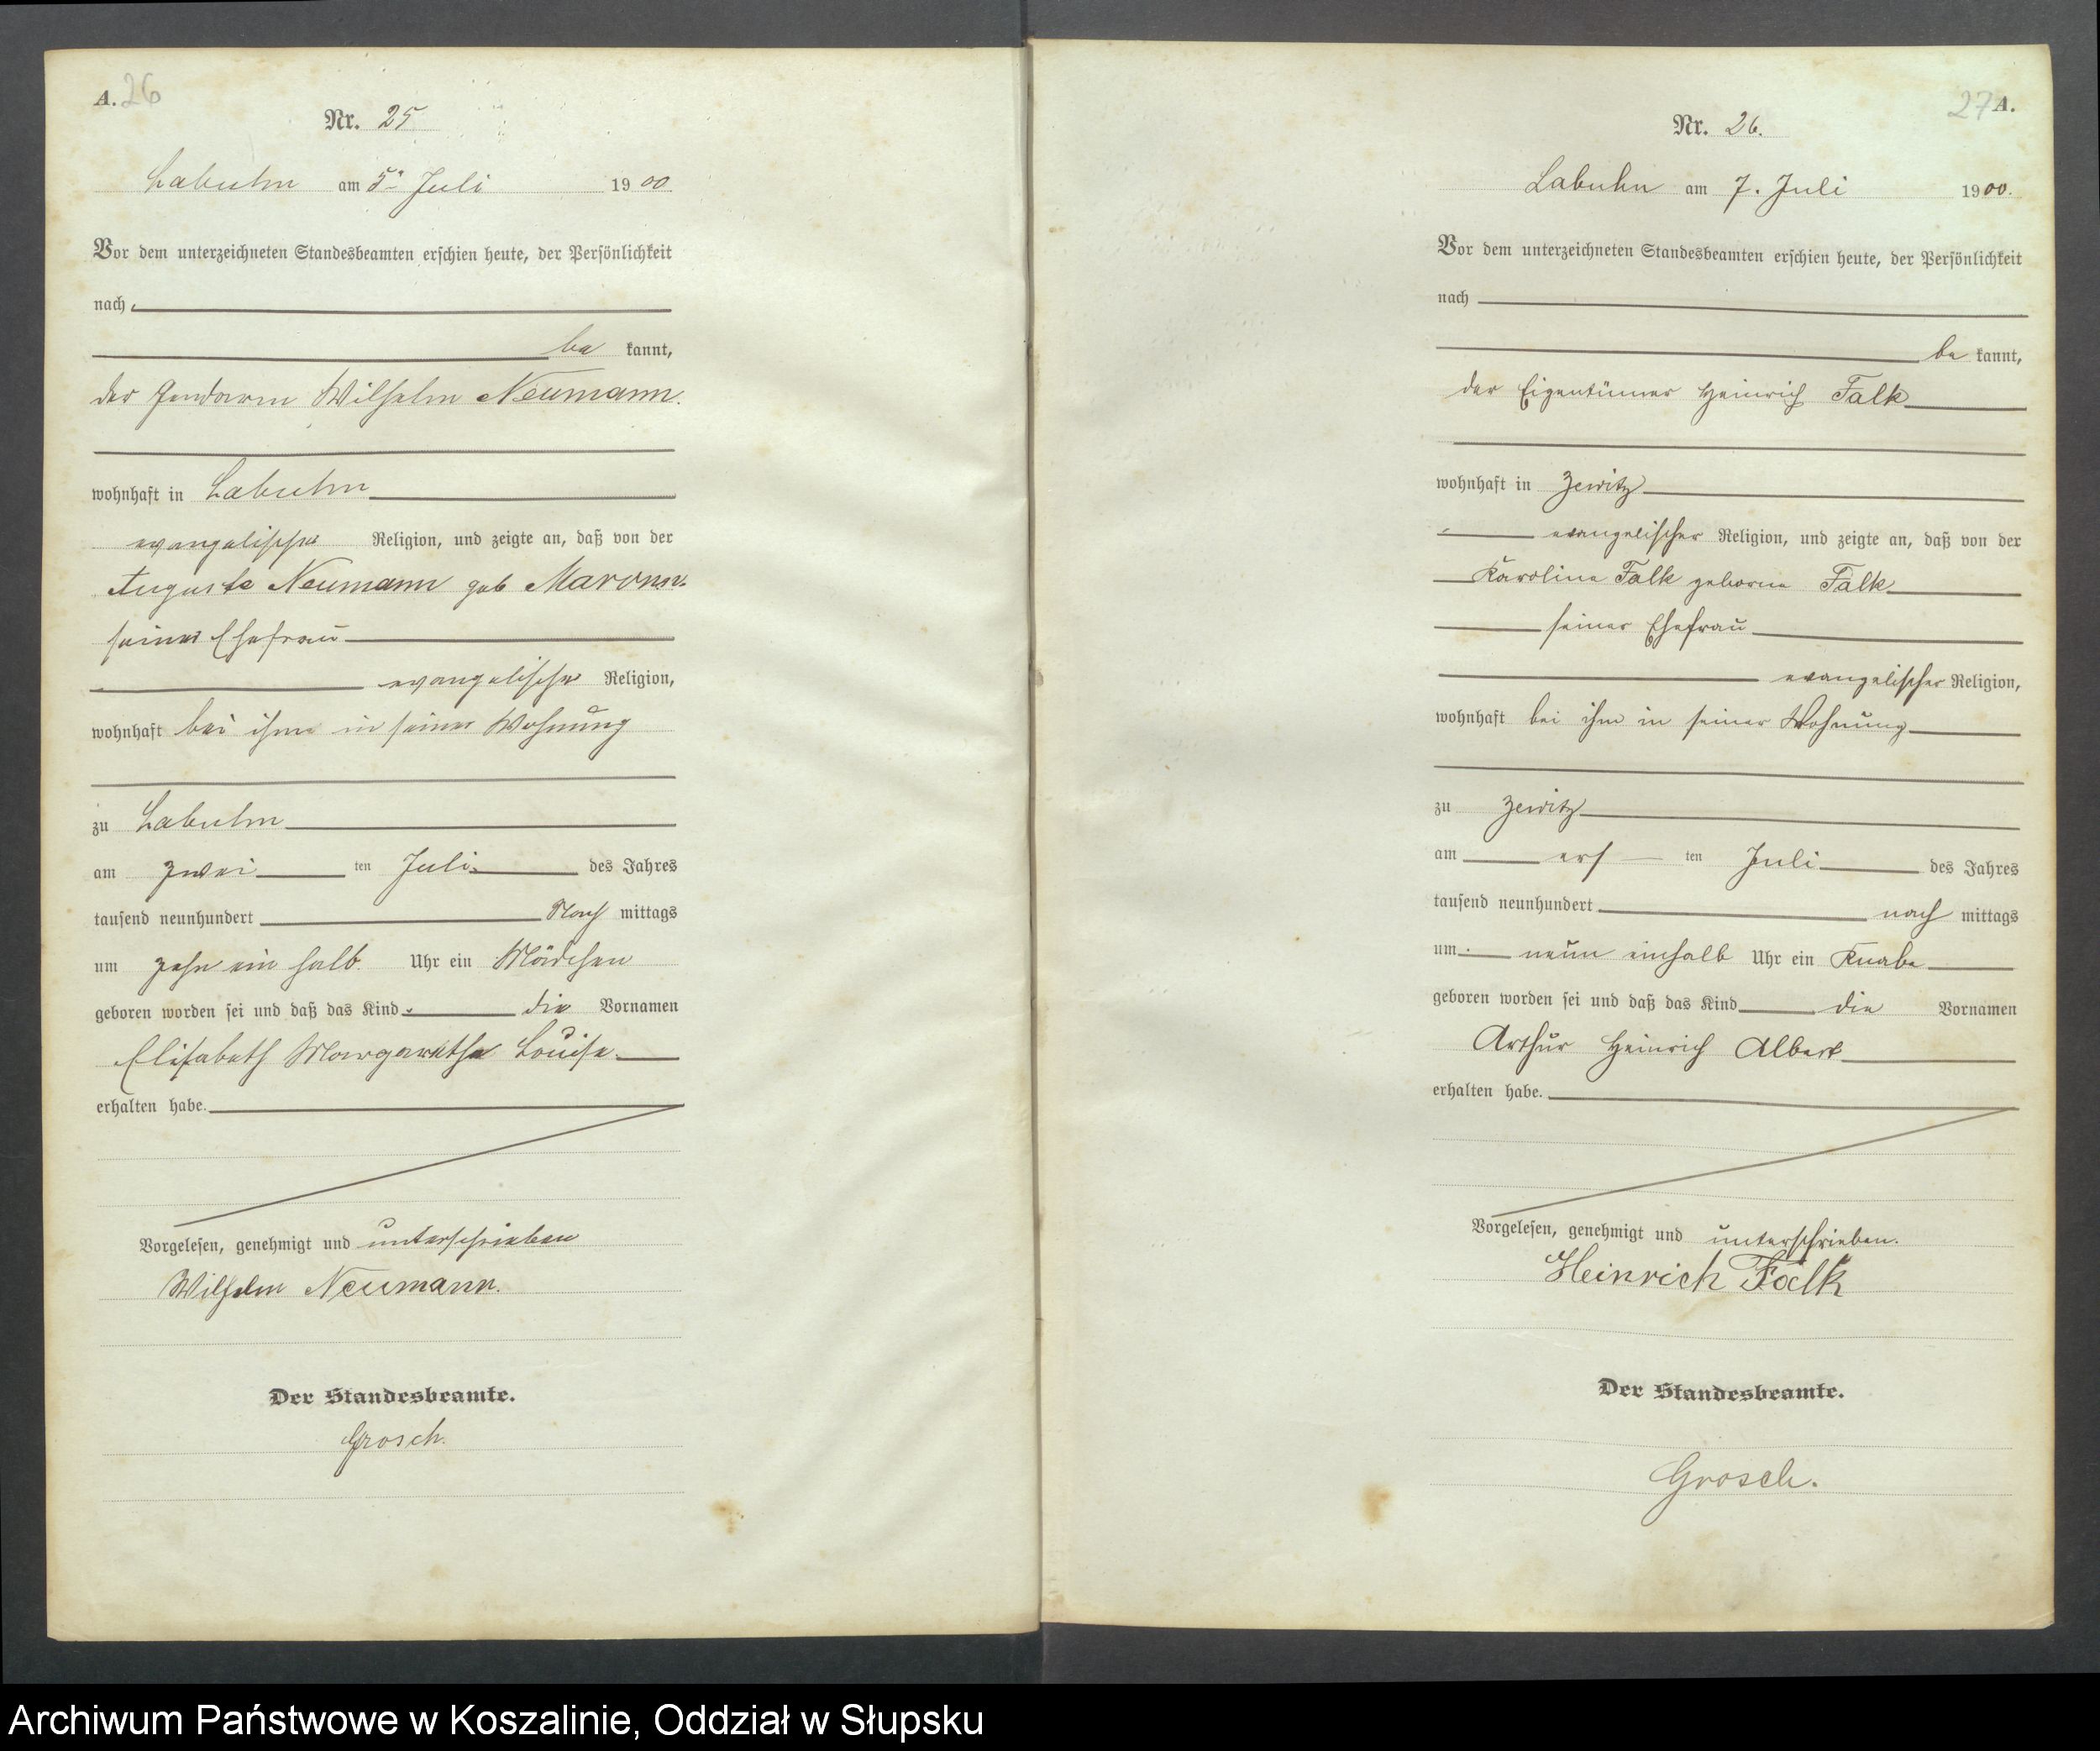 A. 26
Nr. 25
Labuhn am 5ᵗ Juli 1900
Vor dem unterzeichneten Standesbeamten erschien heute, der Persönlichkeit
nach
be kannt,
der Gendarm Wilhelm Neumann.
wohnhaft in Labuhn
evangelischer Religion, und zeigte an, daß von der
Auguste Neumann geb Maronn.
seiner Ehefrau
evangelischer Religion,
wohnhaft bei ihm in seiner Wohnung
zu Labuhn
am zwei ten Juli des Jahres
tausend neunhundert Nach mittags
um zehn ein halb Uhr ein Mädchen
geboren worden sei und daß das Kind die Vornamen
Elisabeth Margarethe Louise
erhalten habe.
Vorgelesen, genehmigt und unterschrieben
Wilhelm Neumann.
Der Standesbeamte.
Grosch.
27 A.
Nr. 26.
Labuhn am 7. Juli 1900.
Vor dem unterzeichneten Standesbeamten erschien heute, der Persönlichkeit
nach
be kannt,
der Eigentümer Heinrich Falk
wohnhaft in Zewitz
evangelischer Religion, und zeigte an, daß von der
Karoline Falk geborne Falk
seiner Ehefrau
evangelischer Religion,
wohnhaft bei ihm in seiner Wohnung
zu Zewitz
am ers ten Juli des Jahres
tausend neunhundert nach mittags
um neun einhalb Uhr ein Knabe
geboren worden sei und daß das Kind die Vornamen
Arthur Heinrich Albert
erhalten habe.
Vorgelesen, genehmigt und unterschrieben.
Heinrich Falk
Der Standesbeamte.
Grosch.
Archiwum Państwowe w Koszalinie, Oddział w Słupsku